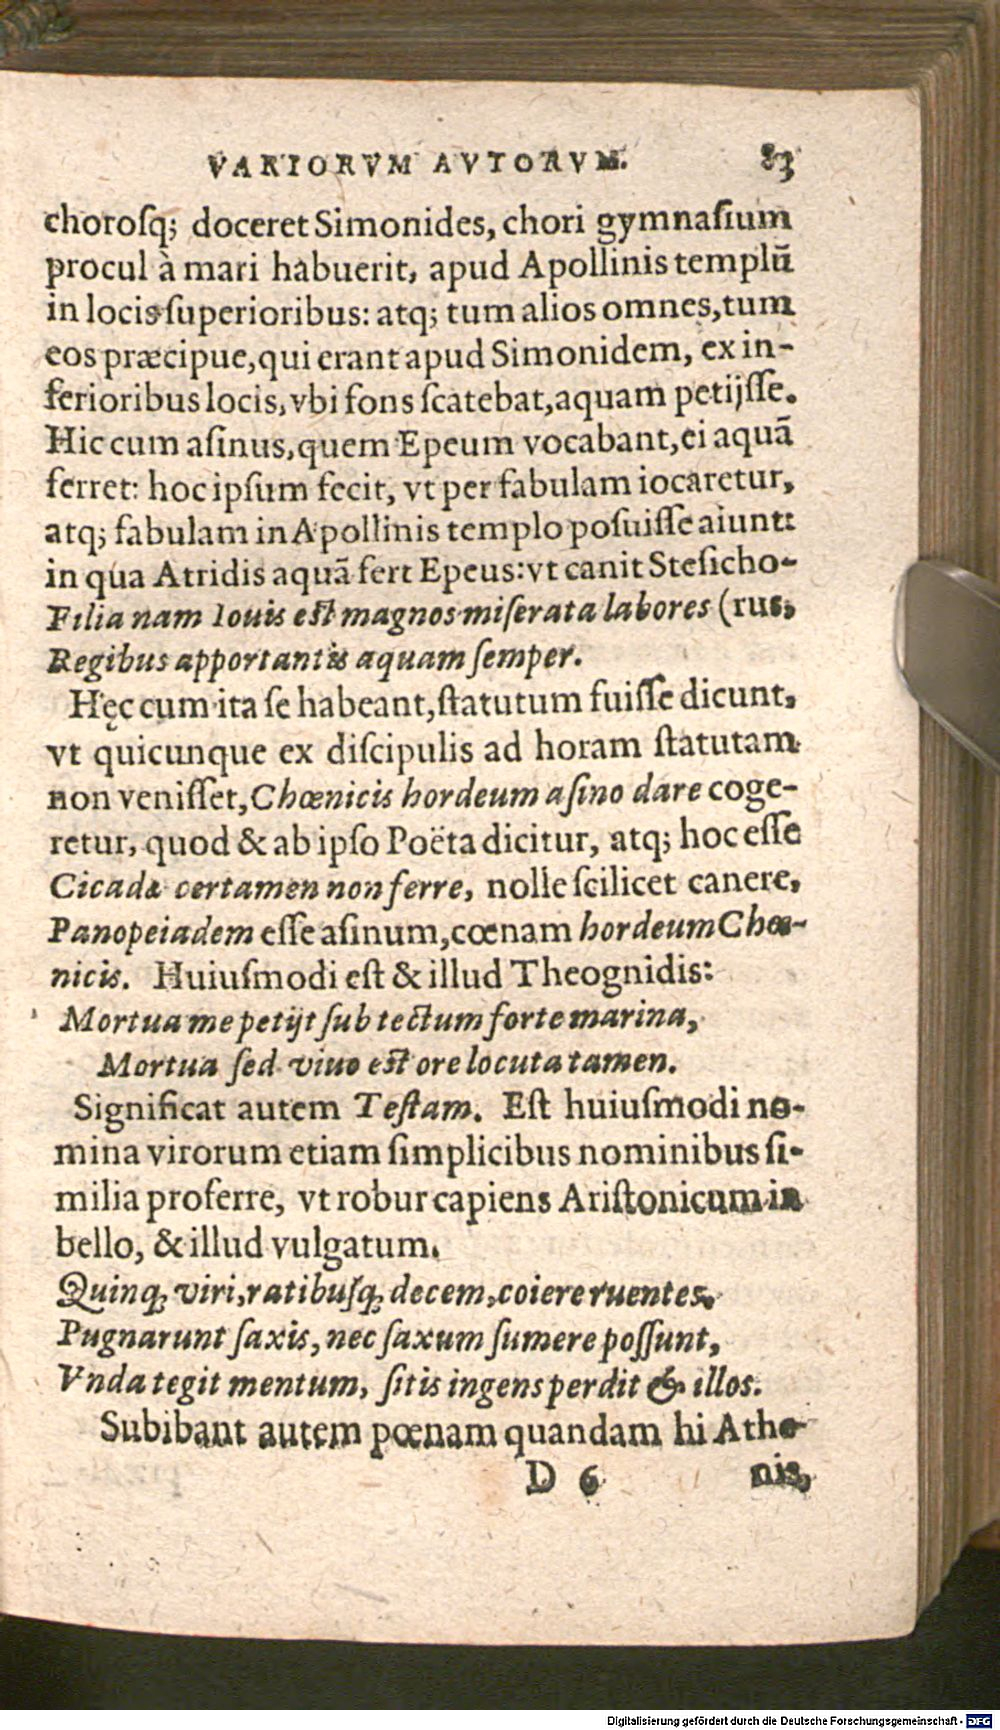 VARIORVM AVTORVM. 83
choroſq; doceret Simonides, chori gymnaſium
procul à mari habuerit, apud Apollinis templũ
in locis ſuperioribus: atq; tum alios omnes, tum
eos præcipue, qui erant apud Simonidem, ex in-
ferioribus locis, vbi fons ſcatebat, aquam petijſſe.
Hic cum aſinus, quem Epeum vocabant, ei aquã
ferret: hoc ipſum fecit, vt per fabulam iocaretur,
atq; fabulam in Apollinis templo poſuiſſe aiunt:
in qua Atridis aquã fert Epeus: vt canit Steſicho-
Filia nam Iouis eſt magnos miſerata labores (rus,
Regibus apportantis aquam ſemper.
Hęc cum ita ſe habeant, ſtatutum fuiſſe dicunt,
vt quicunque ex diſcipulis ad horam ſtatutam
non veniſſet, Chœnicis hordeum aſino dare coge-
retur, quod & ab ipſo Poëta dicitur, atq; hoc eſſe
Cicadæ certamen non ferre, nolle ſcilicet canere,
Panopeiadem eſſe aſinum, cœnam hordeum Chœ-
nicis. Huiuſmodi eſt & illud Theognidis:
Mortua me petijt ſub tectum forte marina,
Mortua ſed viuo eſt ore locuta tamen.
Significat autem Teſtam. Eſt huiuſmodi no-
mina virorum etiam ſimplicibus nominibus ſi-
milia proferre, vt robur capiens Ariſtonicum in
bello, & illud vulgatum.
Quinq; viri, ratibuſq; decem, coiere ruentes,
Pugnarunt ſaxis, nec ſaxum ſumere poſſunt,
Vnda tegit mentum, ſitis ingens perdit & illos.
Subibant autem pœnam quandam hi Athe-
D 6 nis,
Digitalisierung gefördert durch die Deutsche Forschungsgemeinschaft - DFG